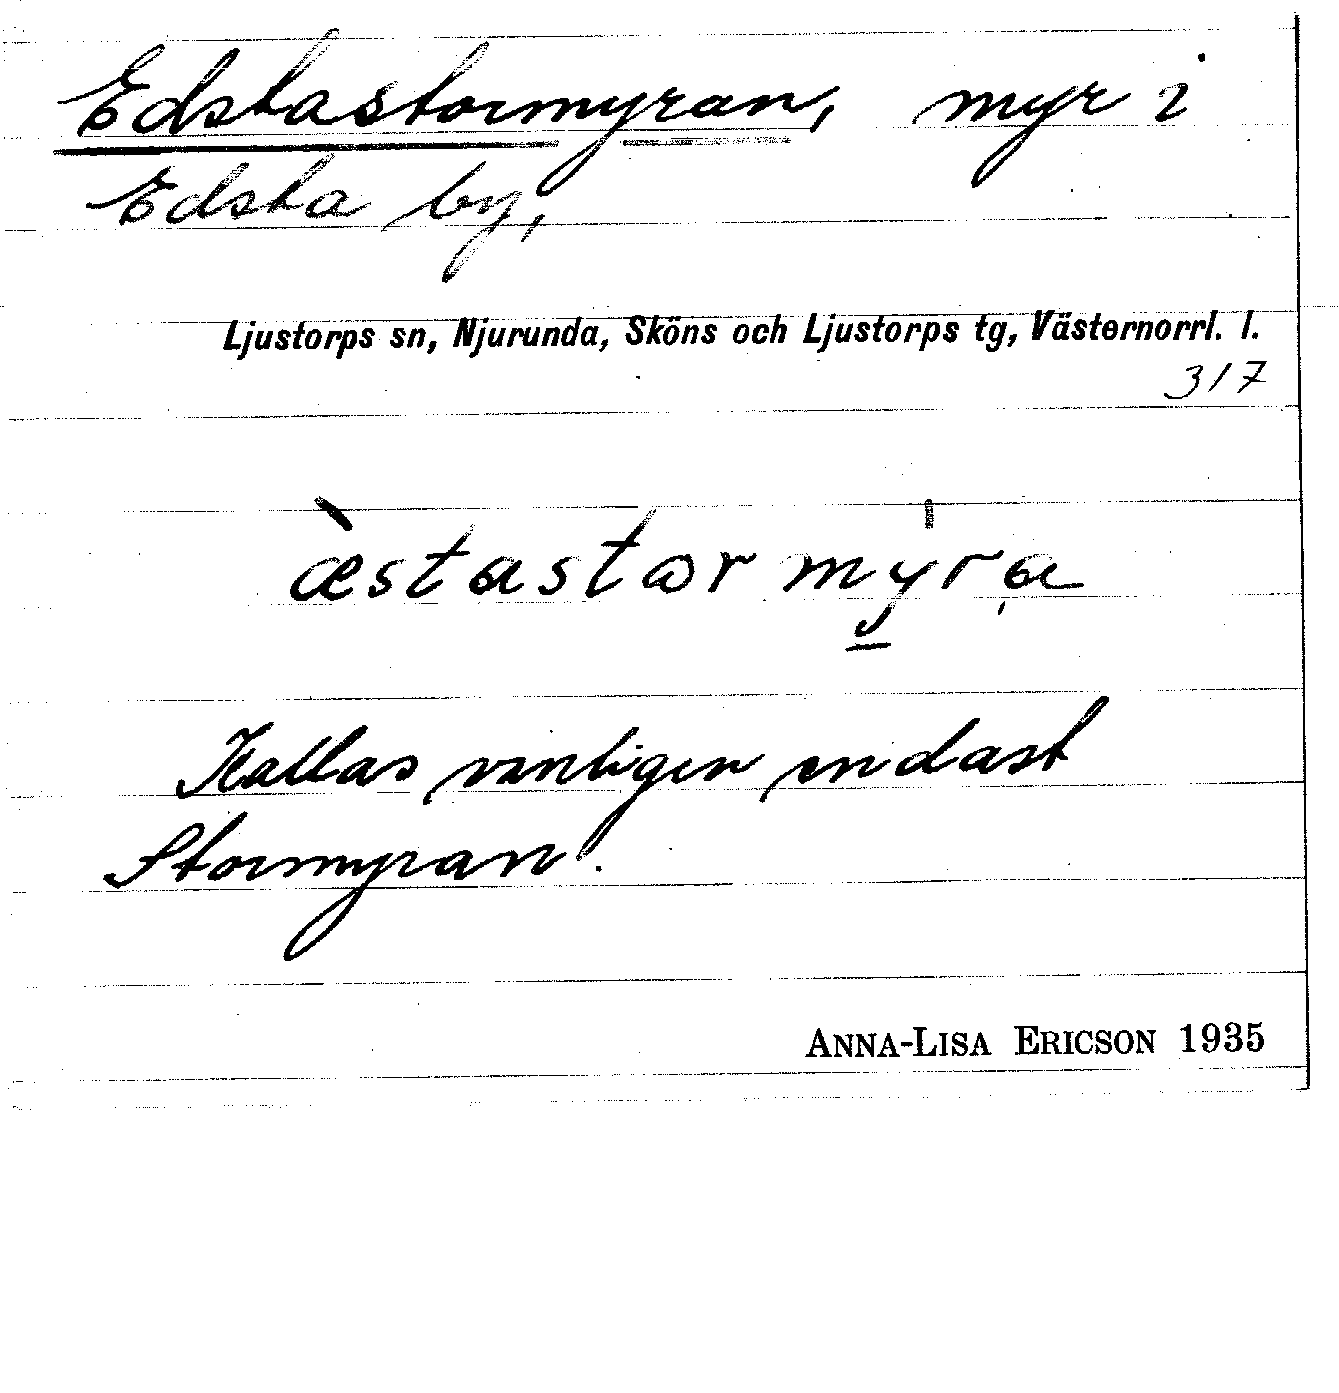 Edstastormyran, myr i
Edsta by,
Ljustorps sn, Njurunda, Sköns och Ljustorps tg, Västernorrl. l.
317
æ̀stastɷr mýra
Kallas vanligen endast
Stormyran.
ANNA-LISA ERICSON 1935